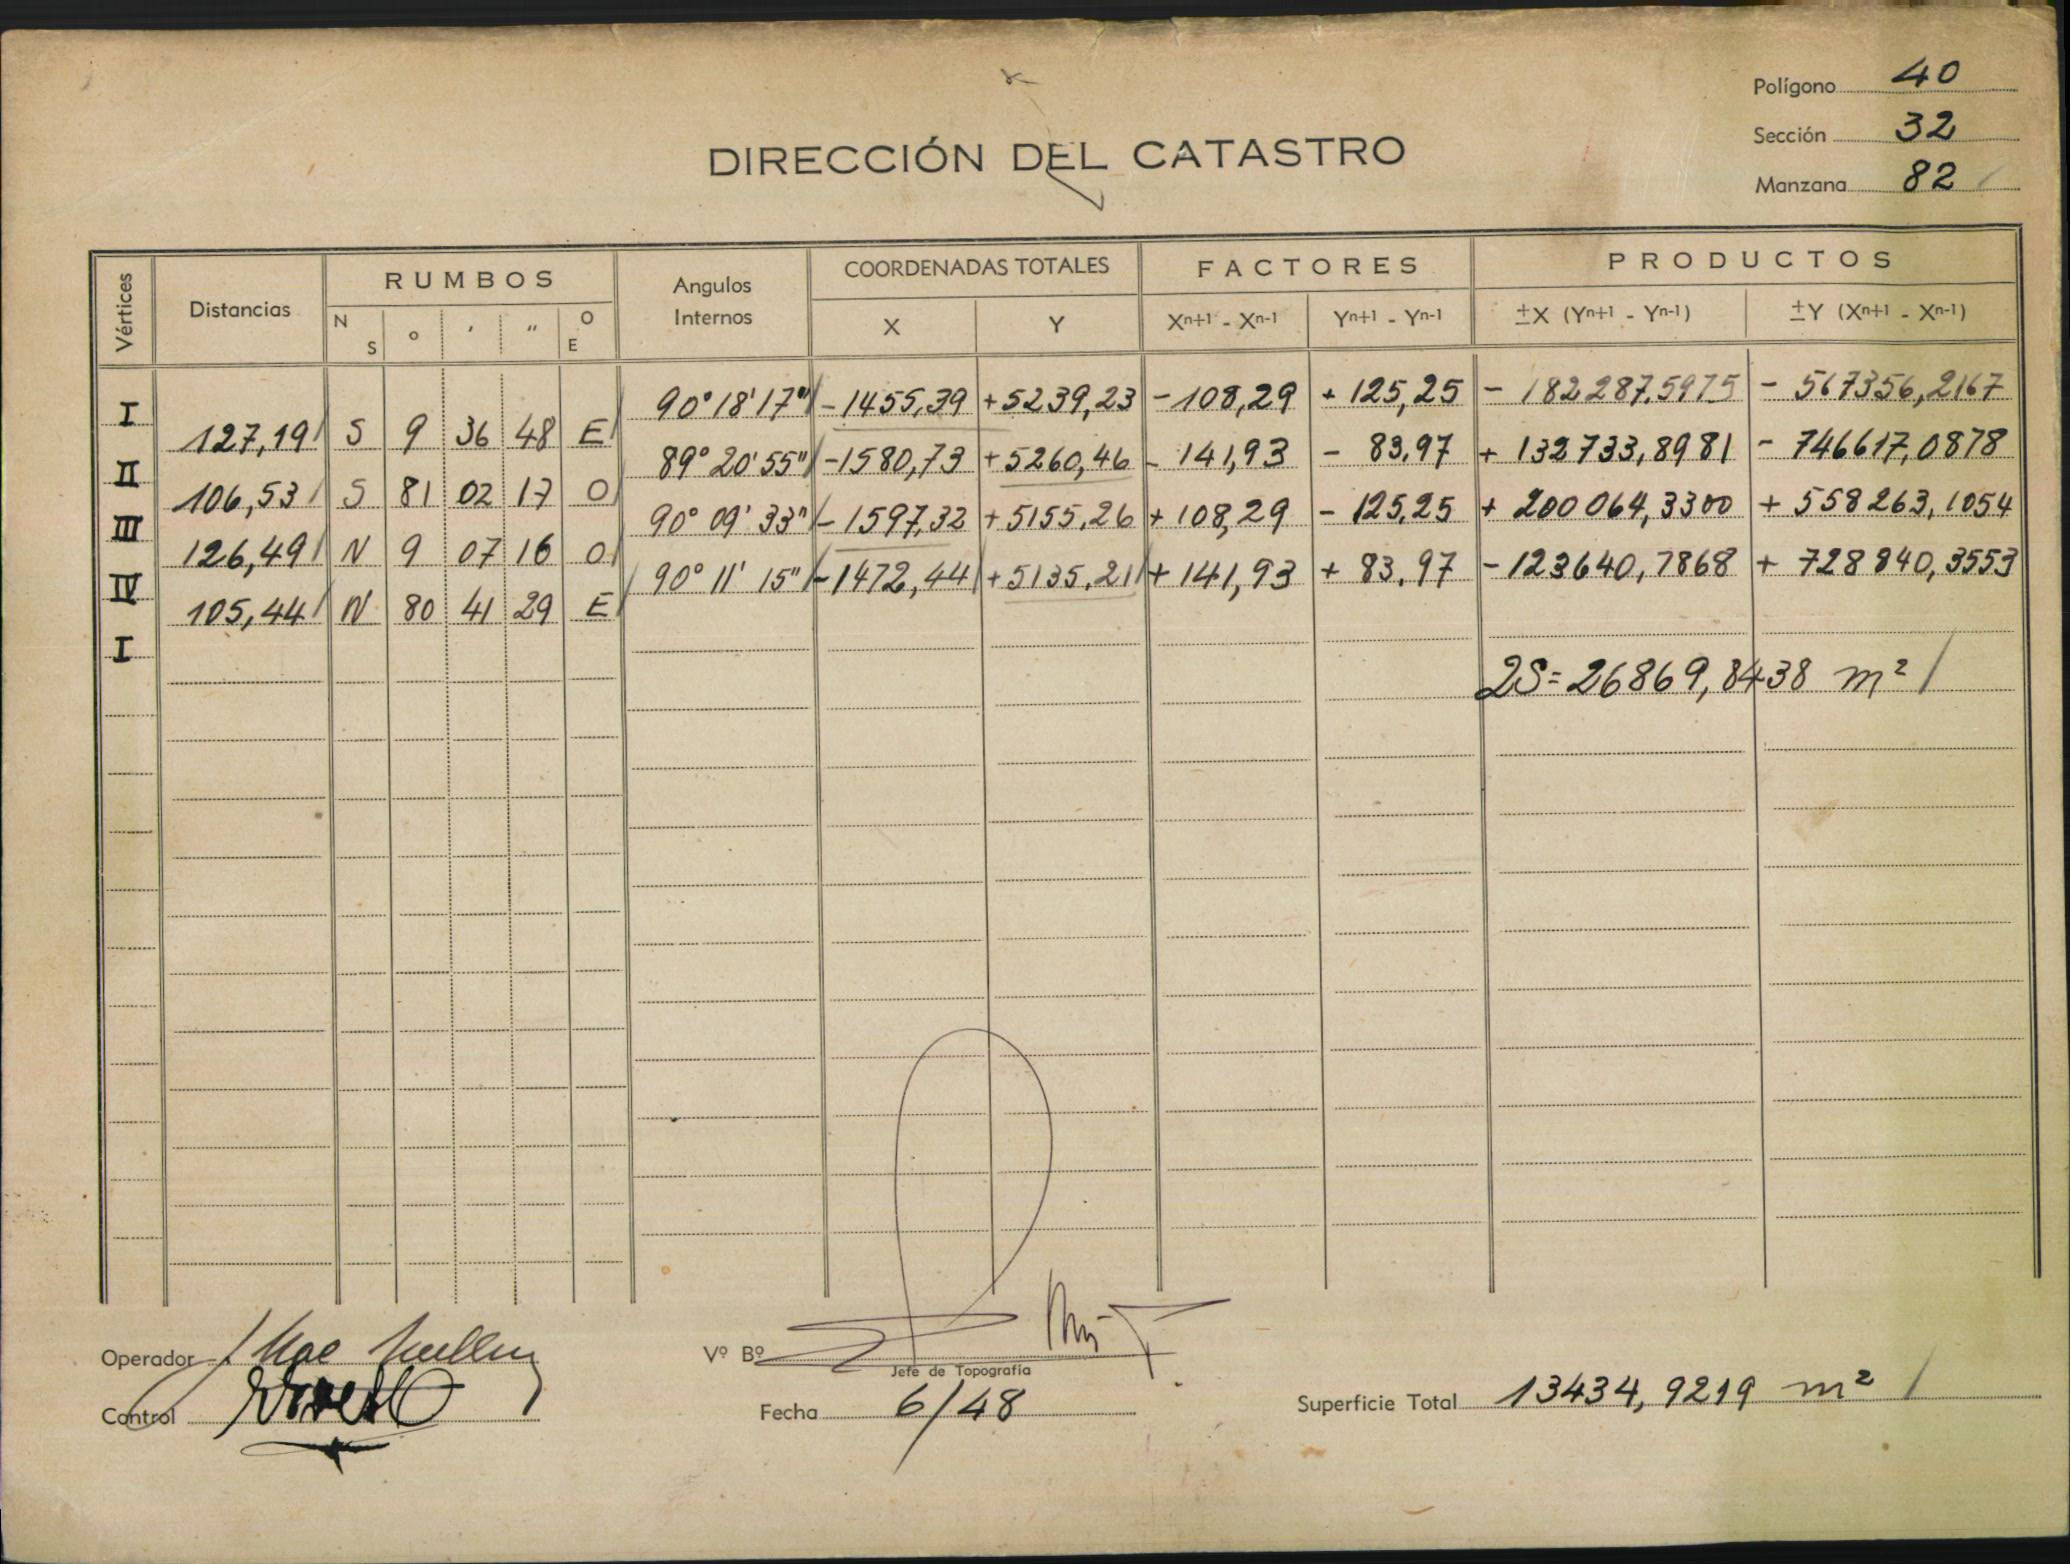 Polígono 40
Sección 32
DIRECCIÓN DEL CATASTRO
Manzana 82
Vértices Distancias RUMBOS Angulos Internos COORDENADAS TOTALES FACTORES PRODUCTOS
N S ° ′ ″ O E X Y Xn+1 - Xn-1 Yn+1 - Yn-1 ±X (Yn+1 - Yn-1) ±Y (Xn+1 - Xn-1)
I 90° 18' 17" -1455,39 +5239,23 -108,29 +125,25 - 182287,5975 - 567356,2167
127,19 S 9 36 48 E
II 89° 20' 55" -1580,73 +5260,46 - 141,93 - 83,97 + 132733,8981 - 746617,0878
106,53 S 81 02 17 O
III 90° 09' 33" - 1597,32 +5155,26 +108,29 - 125,25 + 200064,3300 + 558263,1054
126,49 N 9 07 16 O
IV 90° 11' 15" -1472,44 +5135,21 +141,93 + 83,97 -123640,7868 + 728840,3553
105,44 N 80 41 29 E
I
2S= 26869,8438 m²
Operador
Vº Bº
Jefe de Topografía
Control
Fecha 6/48
Superficie Total 13434,9219 m²